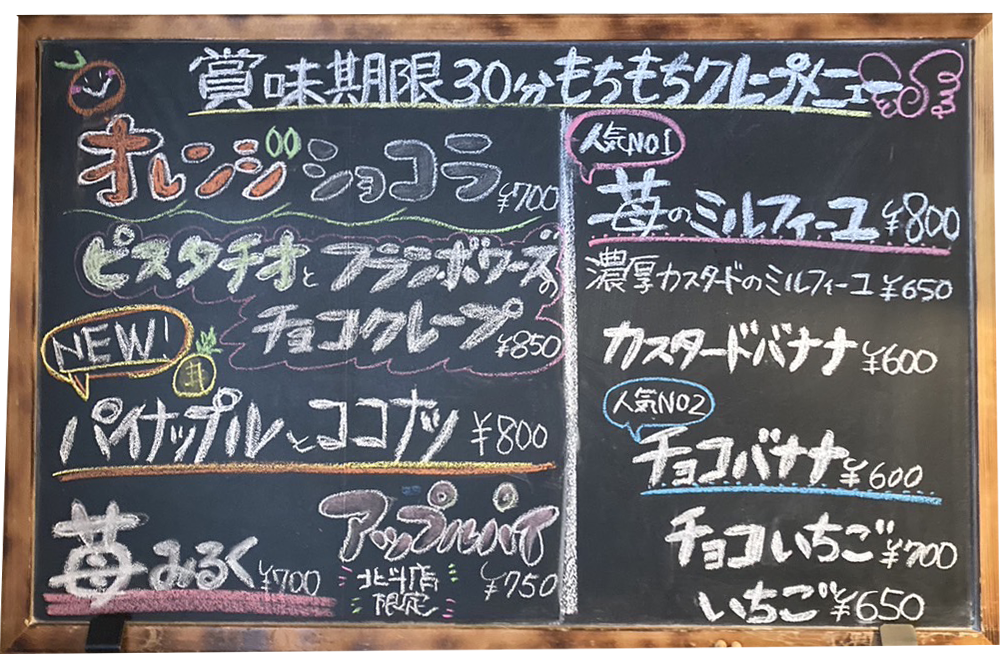 賞味期限30分もちもちクレープメニュー
オレンジショコラ ¥700
ピスタチオとフランボワーズの
チョコクレープ ¥850
NEW!
パイナップルとココナッツ ¥800
苺みるく ¥700
アップルパイ
北斗店
限定
¥750
人気NO1
苺のミルフィーユ ¥800
濃厚カスタードのミルフィーユ ¥650
カスタードバナナ ¥600
人気NO2
チョコバナナ ¥600
チョコいちご ¥700
いちご ¥650